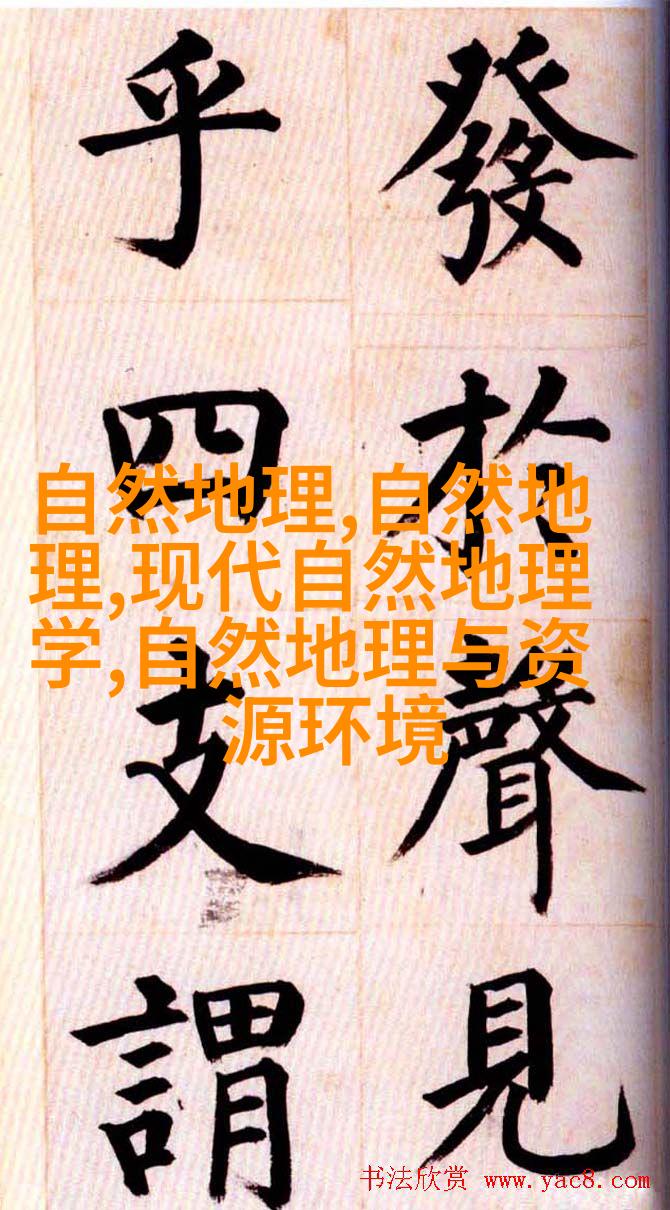 發於聲見
乎四支謂
自然地理,自然地
理,现代自然地理
学,自然地理与资
源环境
书法欣赏 www.yac8.com